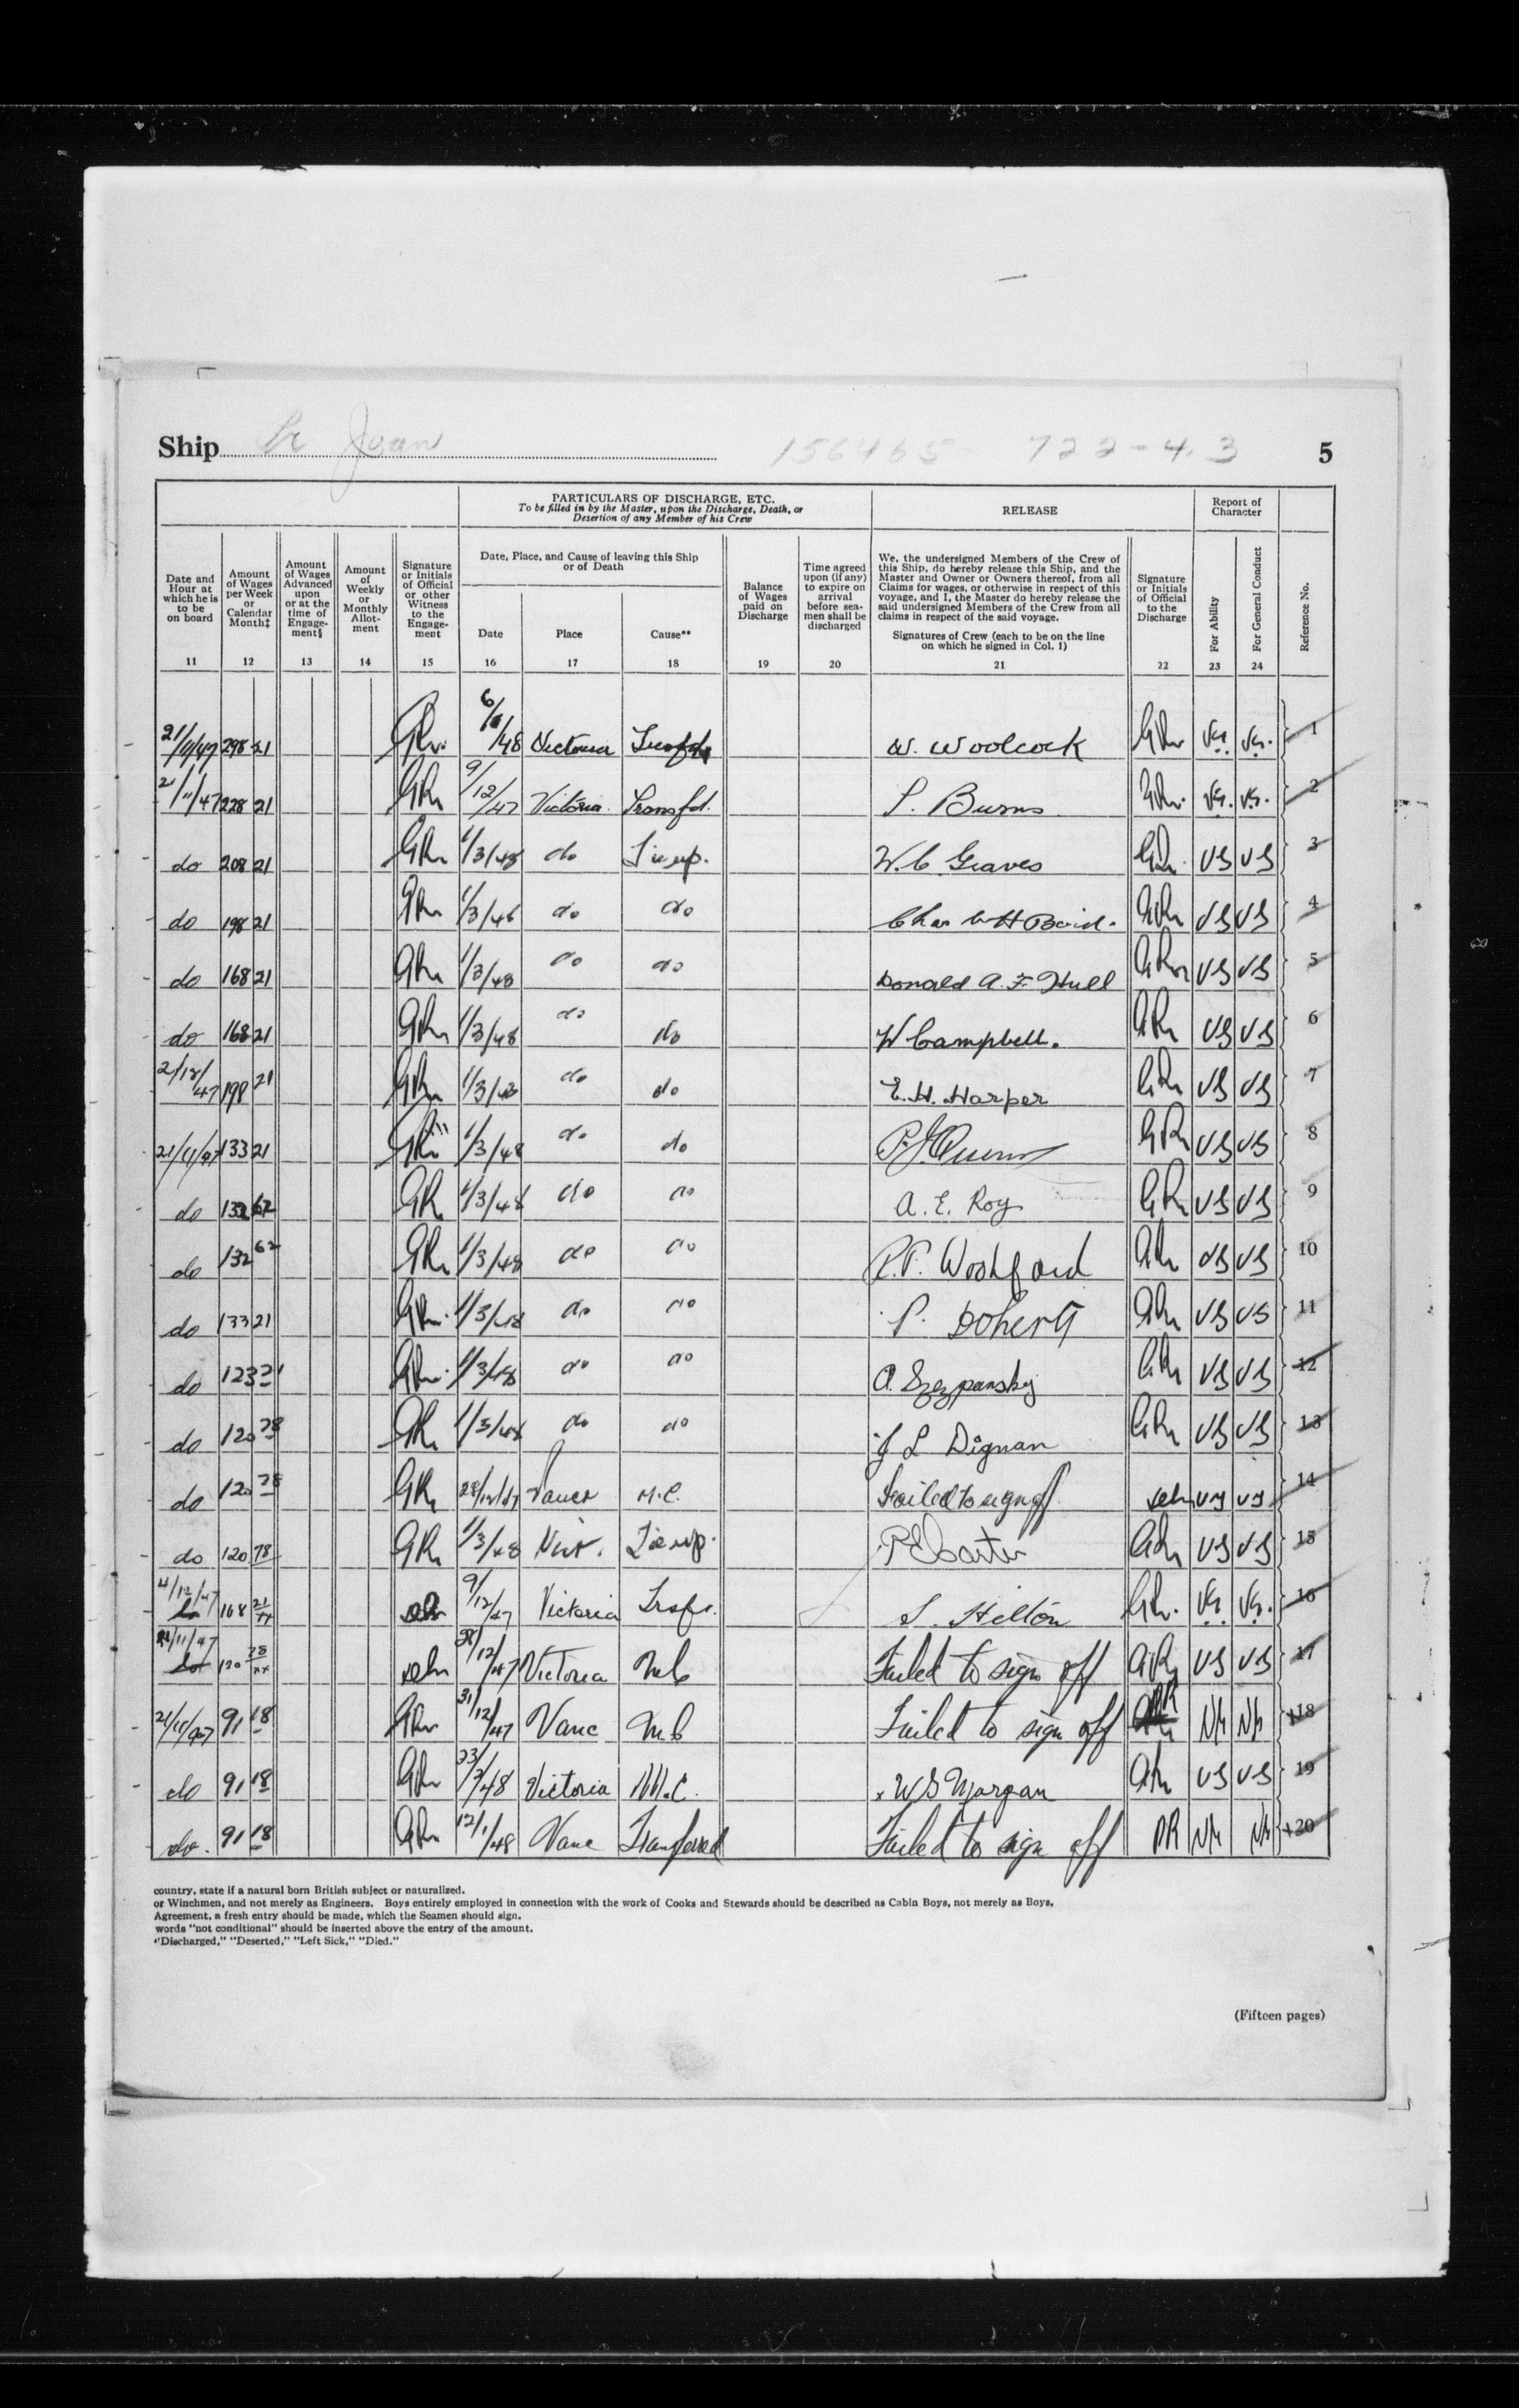 Ship Pr Joan 156465 - 722-4.3 5
PARTICULARS OF DISCHARGE, ETC.
To be filled in by the Master, upon the Discharge, Death, or
Desertion of any Member of his Crew
RELEASE
Report of
Character
Date and
Hour at
which he is
to be
on board
11
Amount
of Wages
per Week
or
Calendar
Month‡
12
Amount
of Wages
Advanced
upon
or at the
time of
Engage-
ment§
13
Amount
of
Weekly
or
Monthly
Allot-
ment
14
Signature
or Initials
of Official
or other
Witness
to the
Engage-
ment
15
Date, Place, and Cause of leaving this Ship
or of Death
Date
16
Place
17
Cause**
18
Balance
of Wages
paid on
Discharge
19
Time agreed
upon (if any)
to expire on
arrival
before sea-
men shall be
discharged
20
We, the undersigned Members of the Crew of
this Ship, do hereby release this Ship, and the
Master and Owner or Owners thereof, from all
Claims for wages, or otherwise in respect of this
voyage, and I, the Master do hereby release the
said undersigned Members of the Crew from all
claims in respect of the said voyage.
Signatures of Crew (each to be on the line
on which he signed in Col. 1)
21
Signature
or Initials
of Official
to the
Discharge
22
For Ability
23
For General Conduct
24
Reference No.
21/11/47 298 21 6/1/48 Victoria W. Woolcock VG. VG. 1
21/11/47 228 21 9/12/47 Victoria. Transfd. S. Burns VG. VG. 2
do 208 21 1/3/48 do Tie up. W.C. Graves VG VG 3
do 198 21 1/3/48 do do Chas W H Baird. VG VG 4
do 168 21 1/3/48 do do Donald A. F. Hull VG VG 5
do 168 21 1/3/48 do do W Campbell. VG VG 6
2/12/47 198 21 1/3/48 do do E. H. Harper VG VG 7
21/11/47 133 21 1/3/48 do do VG VG 8
do 132 62 1/3/48 do do A. E. Roy VG VG 9
do 132 62 1/3/48 do do VG VG 10
do 133 21 1/3/48 do do P. Doherty VG VG 11
do 123 21 1/3/48 do do A. Szczpansky VG VG 12
do 120 78 1/3/48 do do J L Dignan VG VG 13
do 120 78 28/12/47 Vancr M.C. Failed to sign off VG VG 14
do 120 78 1/3/48 Vict. Tie up. P E Carter VG VG 15
4/12/47 do 168 21 9/12/47 Victoria Trsfr. S. Hilton VG. VG. 16
22/11/47 do 120 78 28/12/47 Victoria M C Failed to sign off VG VG 17
21/11/47 91 18 31/12/47 Vanc M C Failed to sign off NG NG +18
do 91 18 Victoria M.C. x W S Morgan VG VG 19
do. 91 18 12/1/48 Vanc Transfered Failed to sign off DR NG NG +20
country, state if a natural born British subject or naturalized.
or Winchmen, and not merely as Engineers. Boys entirely employed in connection with the work of Cooks and Stewards should be described as Cabin Boys, not merely as Boys.
Agreement, a fresh entry should be made, which the Seamen should sign.
words "not conditional" should be inserted above the entry of the amount.
"Discharged," "Deserted," "Left Sick," "Died."
(Fifteen pages)